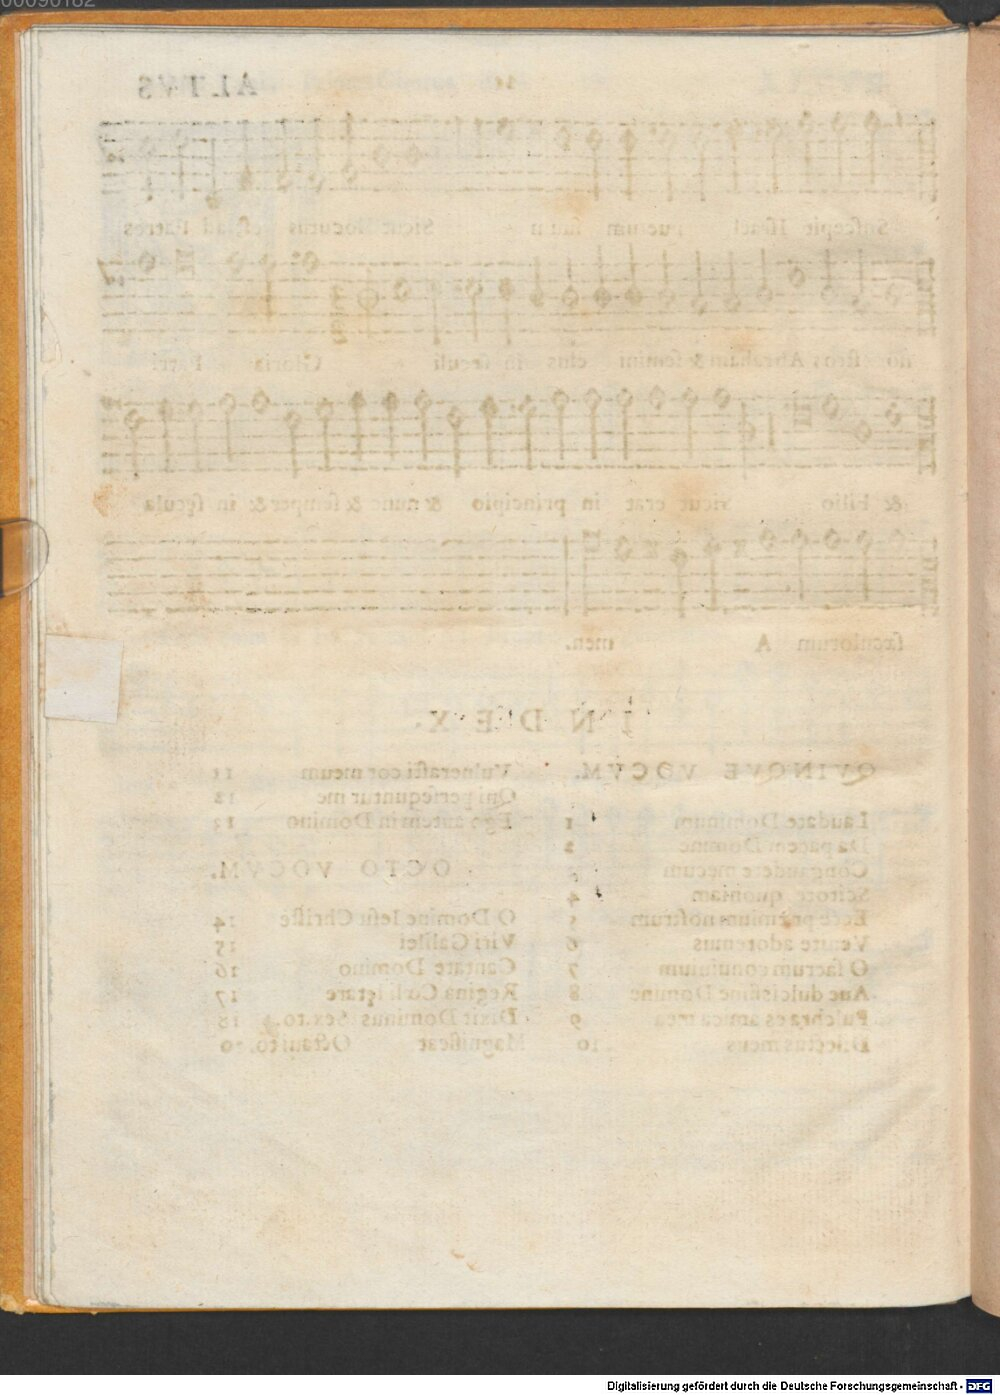 ALTVS
Suscepit Israel puerum suum Sicut locutus est ad Patres
no stros Abraham & semini eius in seculi Gloria Patri
& Filio sicut erat in principio & nunc & semper & in secula
seculorum A men.
INDEX.
QVINQVE VOCVM.
Laudate Dominum 1
Da pacem Domine 2
Congaudete mecum
Scitote quoniam 4
Ecce præmium nostrum 5
Venite adoremus 6
O sacrum conuiuium 7
Aue dulcissime Domine 8
Pulchra es amica mea 9
Dilectus meus 10
Vulnerasti cor meum 11
Qui persequuntur me 12
Ego autem in Domino 13
OCTO VOCVM.
O Domine Iesu Christe 14
Viri Galilei 15
Cantate Domino 16
Regina Cæli letare 17
Dixit Dominus Sex.to. 18
Magnificat Octaui to.
Digitalisierung gefördert durch die Deutsche Forschungsgemeinschaft - DFG